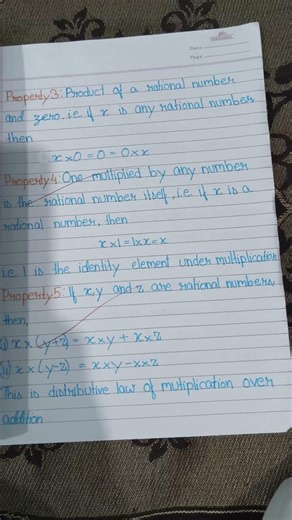 Date
Page
Property 3: Product of a rational number
and zero. i.e. if x is any rational number
then
x×0 = 0 = 0×x
Property 4: One multiplied by any number
is the rational number itself, i.e. if x is a
rational number, then
x×1=1×x=x
i.e 1 is the identity element under multiplication
Property 5: If x,y and z are rational numbers,
then,
(i) x×(y+z) = x×y + x×z
(ii) x×(y-z) = x×y-x×z
This is distributive law of mutiplication over
addition